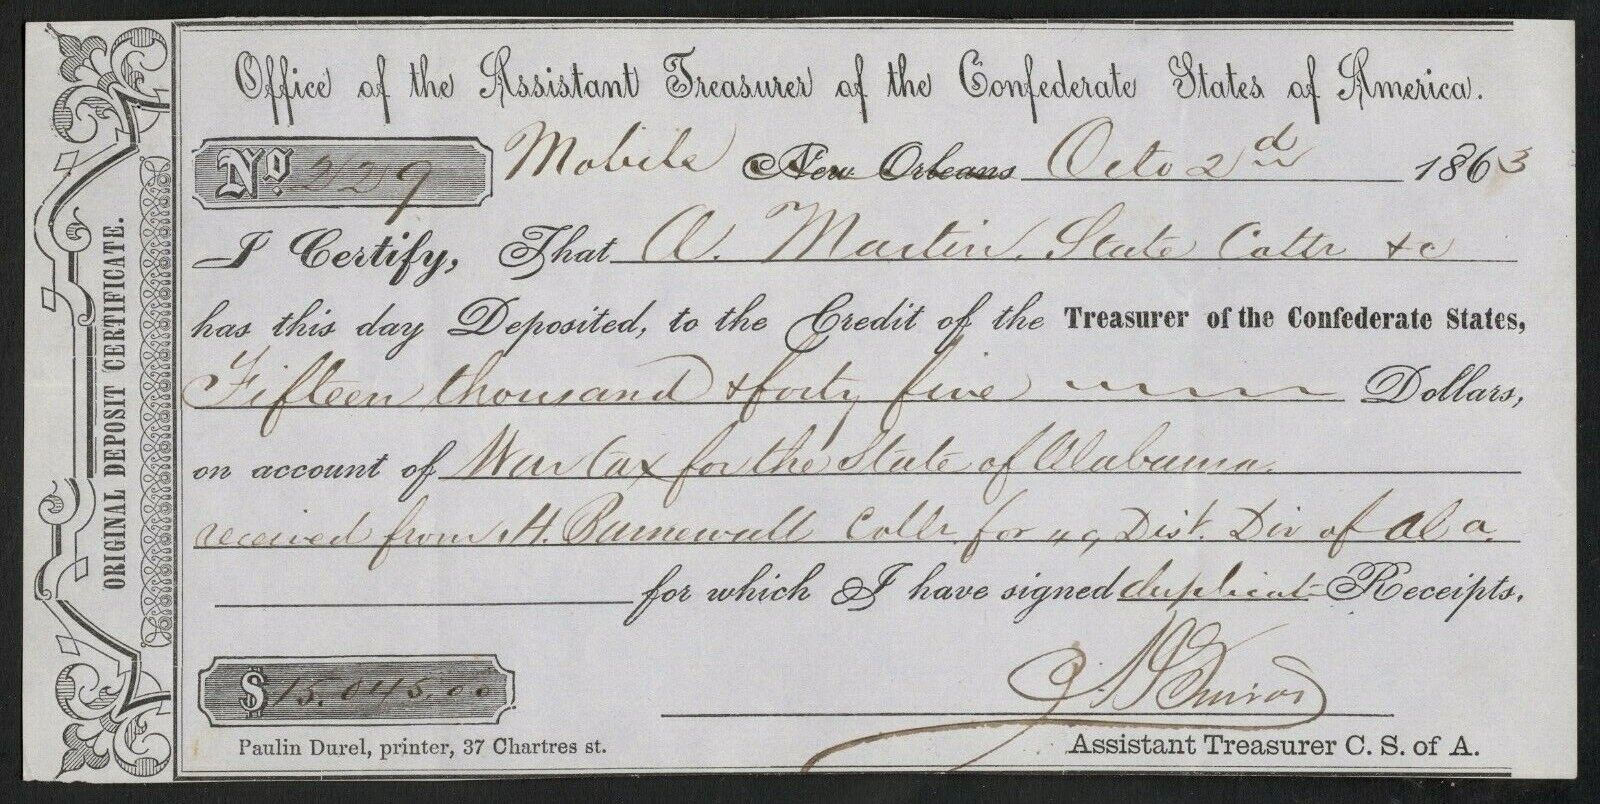 Office of the Assistant Treasurer of the Confederate States of America.
No. 229 Mobile New Orleans Octo 2d 1863
I Certify, That A. Martin. State Collr &c
has this day Deposited, to the Credit of the Treasurer of the Confederate States,
Fifteen thousand & forty five Dollars,
on account of War tax for the State of Alabama.
received from H. Barnewall Collr. for 49 Dist. Div of Ala.
for which I have signed duplicat Receipts.
$15.045.00
Paulin Durel, printer, 37 Chartres st.
Assistant Treasurer C. S. of A.
ORIGINAL DEPOSIT CERTIFICATE.